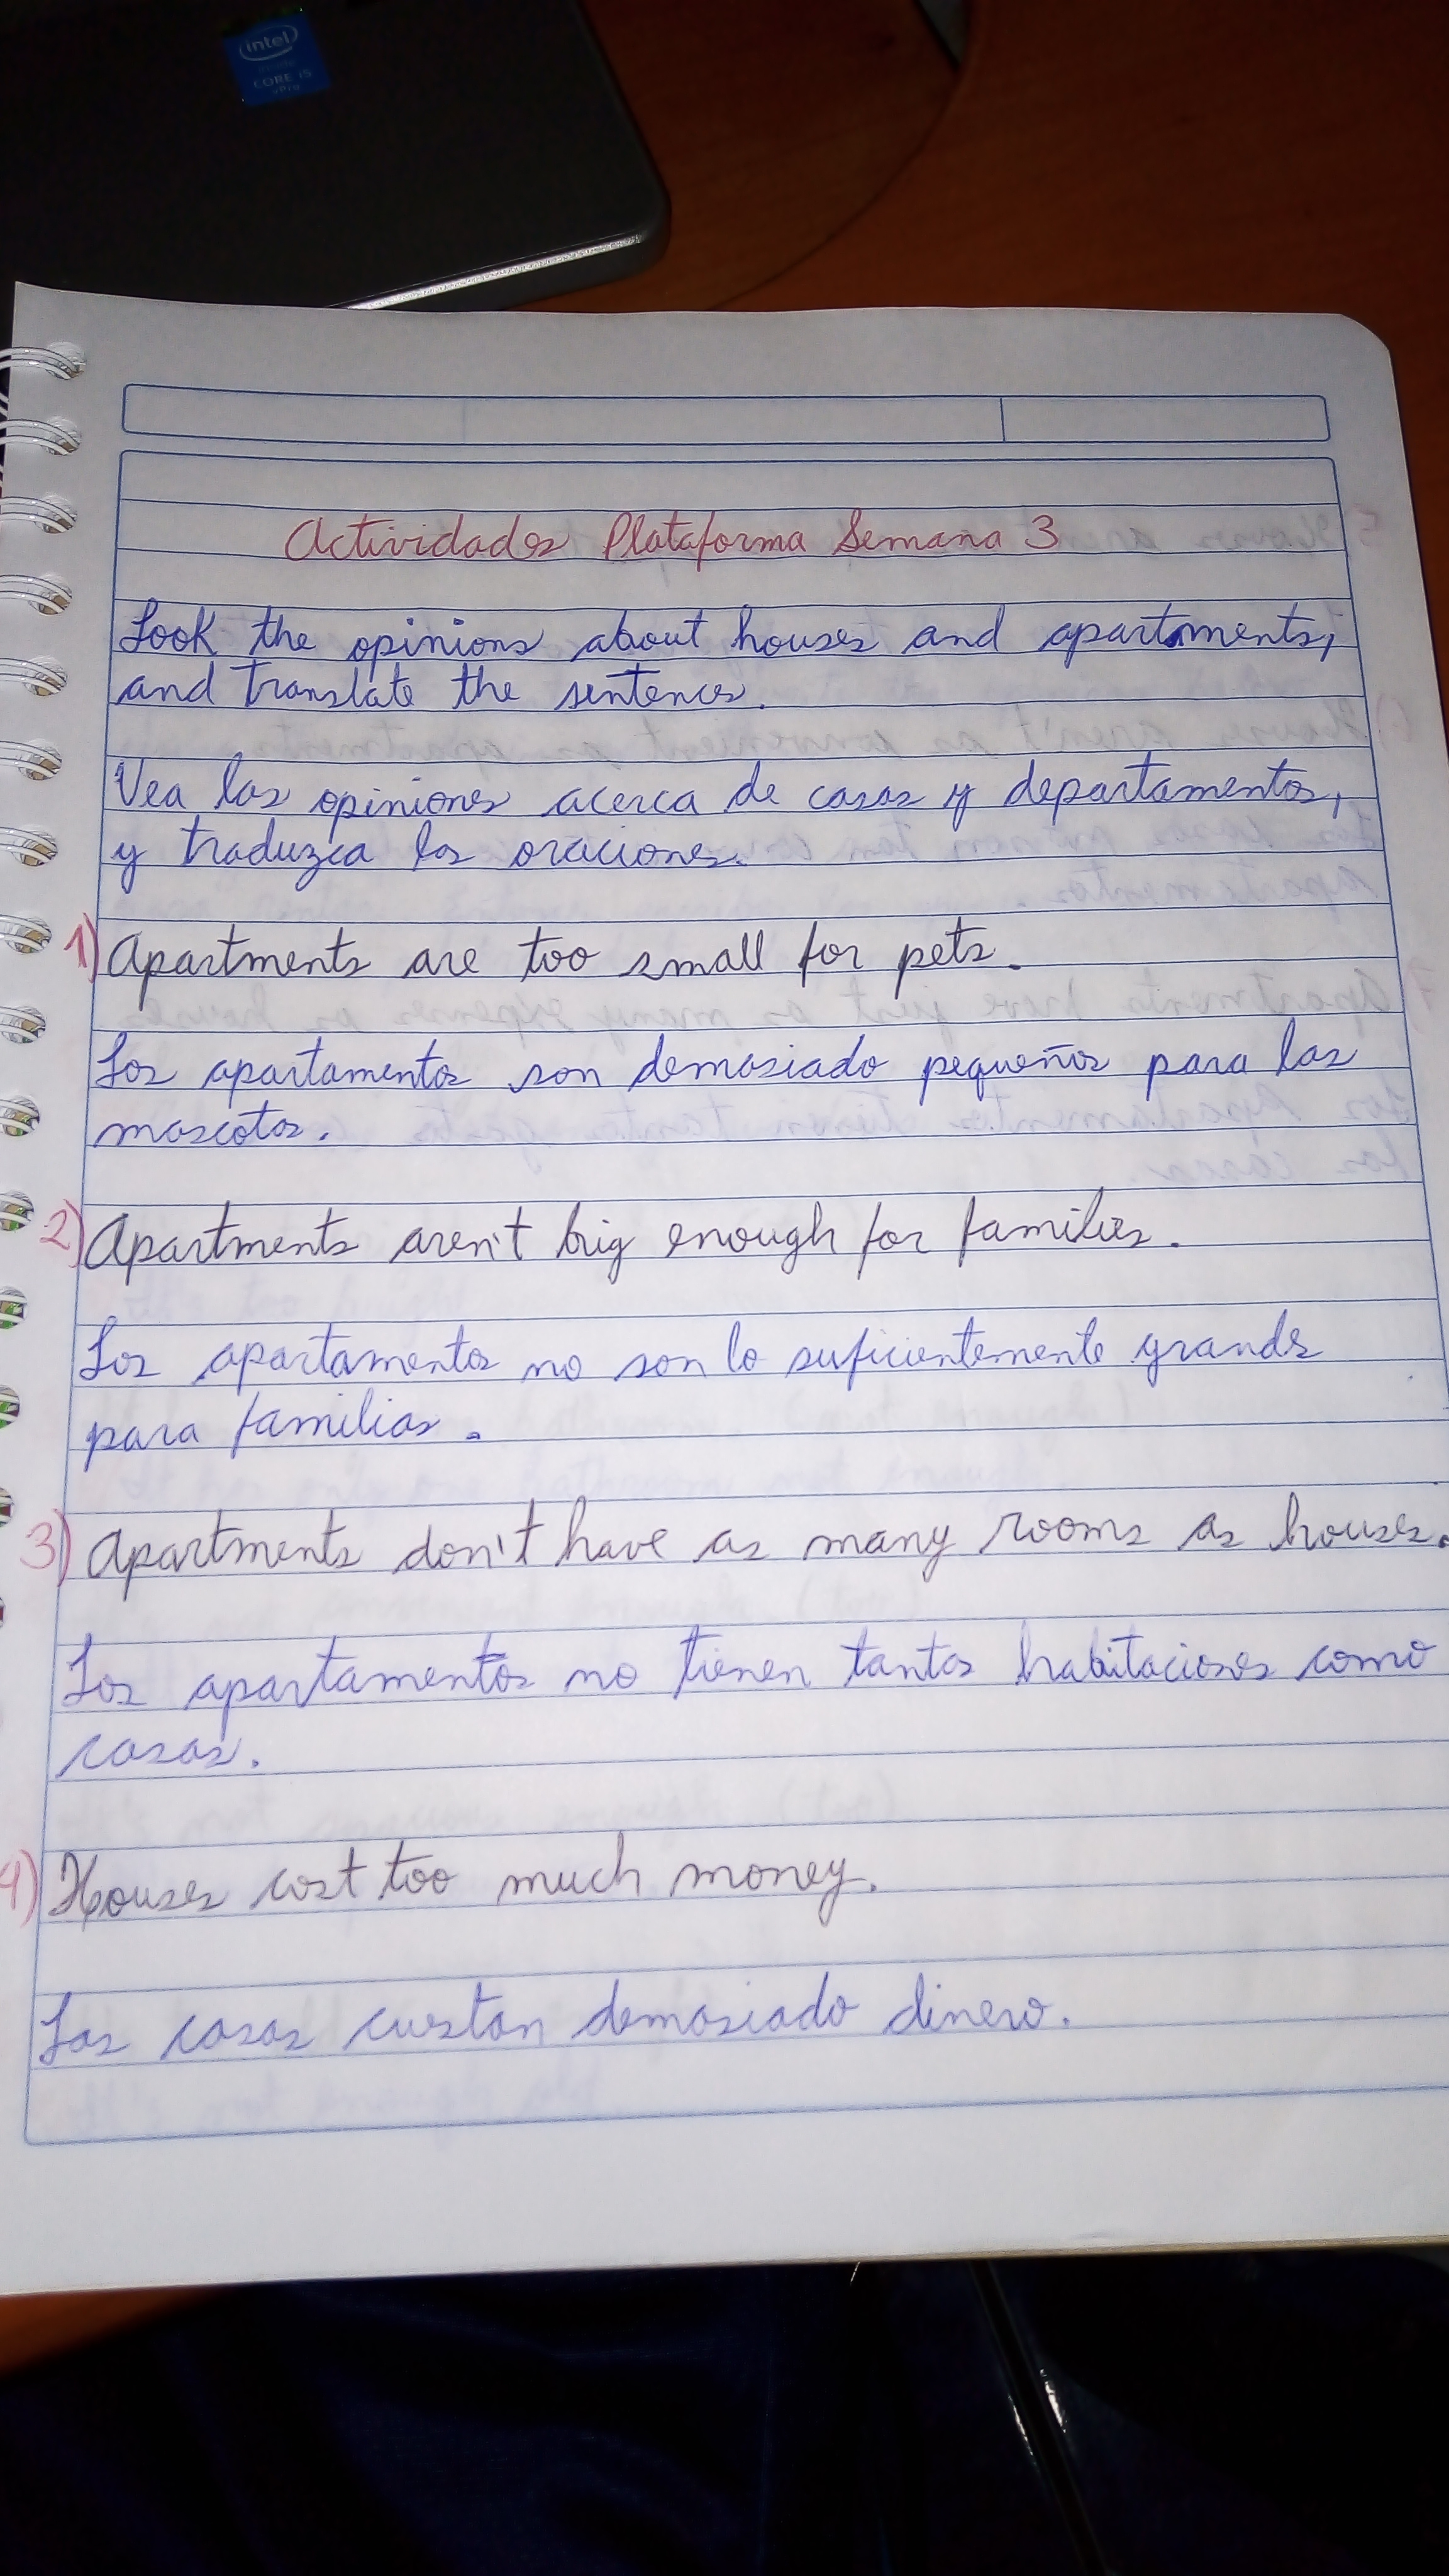 intel
CORE i5
vPro
Actividades Plataforma Semana 3
Look the opinions about houses and apartments;
and translate the sentences.
Vea las opiniones acerca de casas y departamentos,
y traduzca las oraciones.
1) Apartments are too small for pets.
Los apartamentos son demasiado pequeños para las
mascotas.
2) Apartments aren't big enough for families.
Los apartamentos no son lo suficientemente grandes
para familias.
3) Apartments don't have as many rooms as houses.
Los apartamentos no tienen tantas habitaciones como
casas.
4) Houses cost too much money.
Las casas cuestan demasiado dinero.